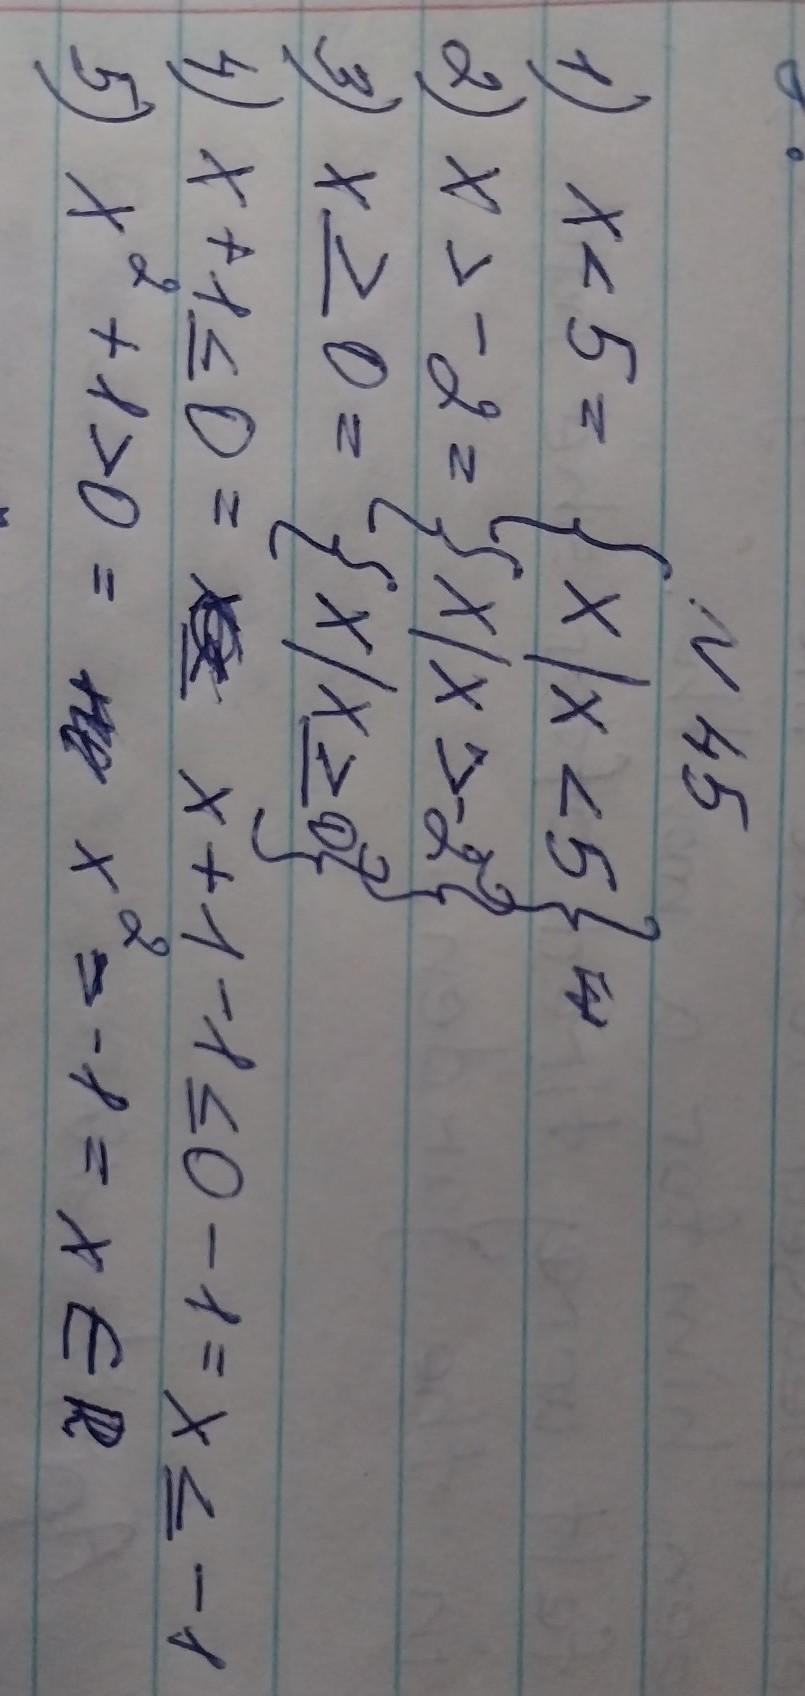 N 45
1) x < 5 = { x / x < 5 }
2) x > -2 = { x / x > -2 }
3) x ≥ 0 = { x / x ≥ 0 }
4) x + 1 ≤ 0 = x + 1 - 1 ≤ 0 - 1 = x ≤ -1
5) x² + 1 > 0 = x² = -1 = x ∈ R